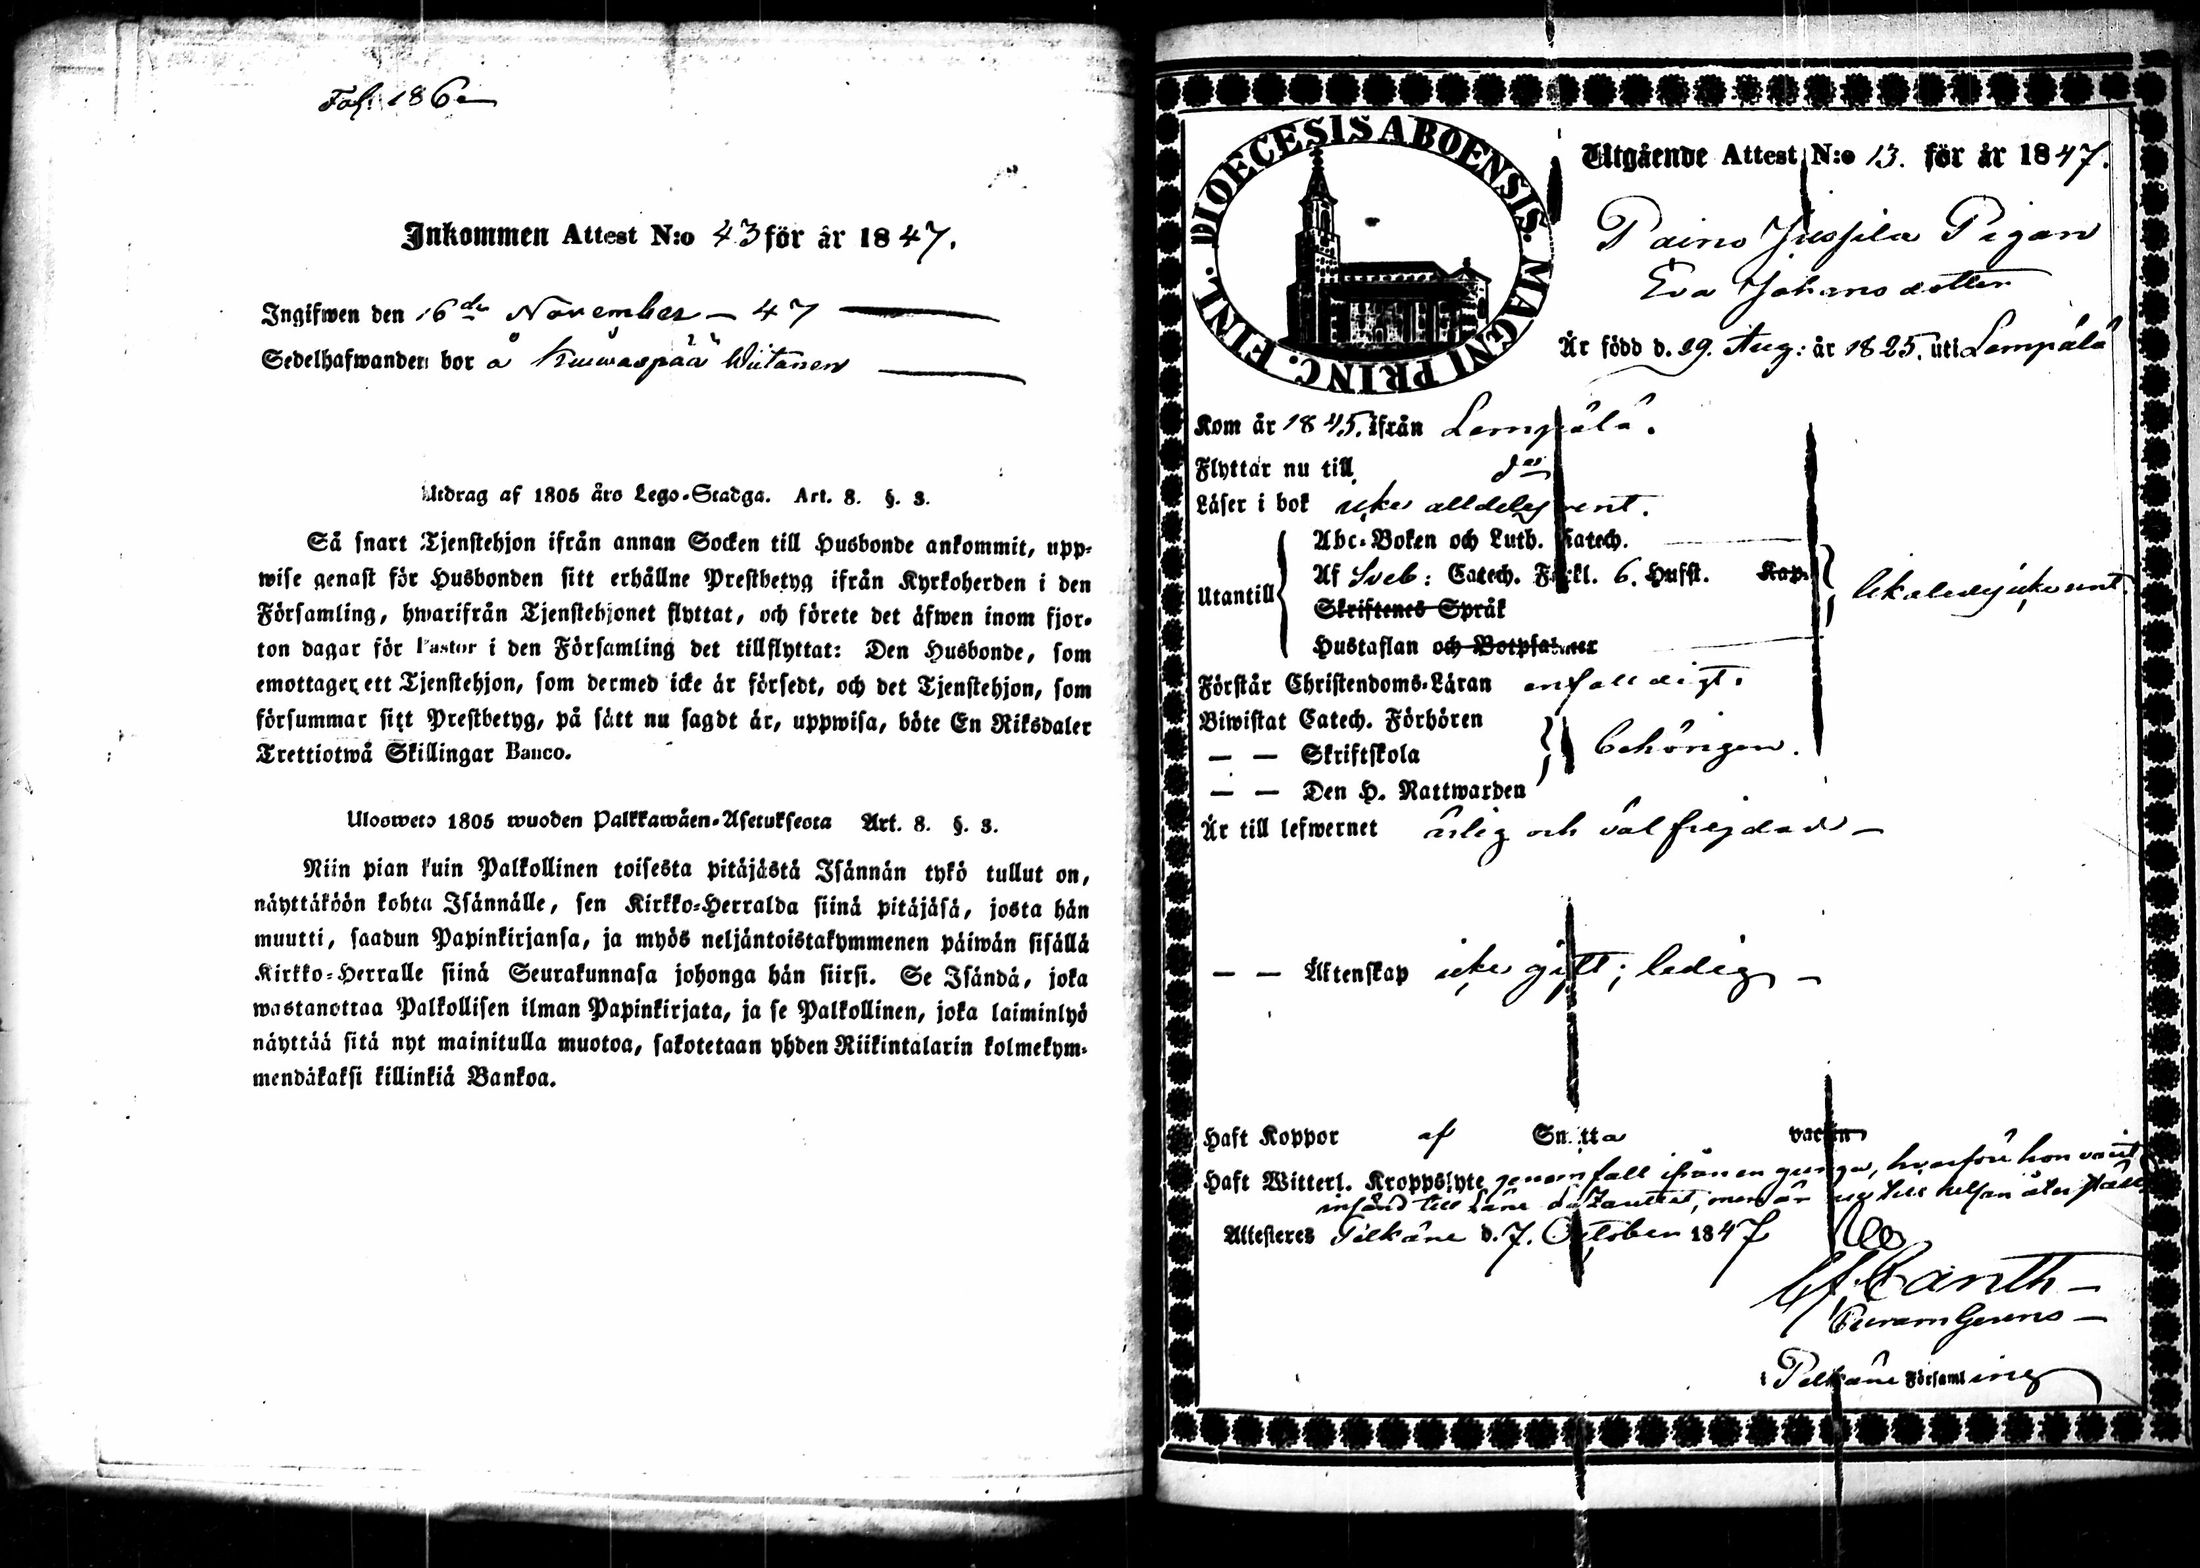 Fol: 186
Inkommen Attest N:o 43 för år 1847.
Ingifwen den 16de November – 47
Sedelhafwanden bor å Kuuwaspää Wiitanen
Utdrag af 1805 års Lego-Stadga. Art. 8. §. 3.
Så snart Tjenstehjon ifrån annan Socken till Husbonde ankommit, upp-
wise genast för Husbonden sitt erhållne Prestbetyg ifrån Kyrkoherden i den
Församling, hwarifrån Tjenstehjonet flyttat, och förete det äfwen inom fjor-
ton dagar för Pastor i den Församling det tillflyttat: Den Husbonde, som
emottager ett Tjenstehjon, som dermed icke är försedt, och det Tjenstehjon, som
försummar sitt Prestbetyg, på sätt nu sagdt är, uppwisa, böte En Riksdaler
Trettiotwå Skillingar Banco.
Ulosweto 1805 wuoden Palkkawäen-Asetuksesta Art. 8. §. 3.
Niin pian kuin Palkollinen toisesta pitäjästä Isännän tykö tullut on,
näyttäköön kohta Isännälle, sen Kirkko-Herralda siinä pitäjäsä, josta hän
muutti, saadun Papinkirjansa, ja myös neljäntoistakymmenen päiwän sisällä
Kirkko-Herralle siinä Seurakunnasa johonga hän siirsi. Se Isändä, joka
wastanottaa Palkollisen ilman Papinkirjata, ja se Palkollinen, joka laiminlyö
näyttää sitä nyt mainitulla muotoa, sakotetaan yhden Riikintalarin kolmekym-
mendäkaksi killinkiä Bankoa.
DIOECESIS ABOENSIS. MAGNI PRINC. FINL.
Utgående Attest N:o 13. för år 1847.
Paino Jussila Pigan
Eva Johansdotter
Är född d. 29. Aug: år 1825. uti Lempälä
Kom år 1845. ifrån Lempälä.
Flyttar nu till do
Läser i bok icke alldeles rent.
Utantill
Abc-Boken och Luth. Katech.
Af Sveb: Catech. Förkl. 6. Hufst. Kap.
Skriftenes Språk
likaledes icke rent.
Hustaflan och Botpsalmer
Förstår Christendoms-Läran enfalldigt.
Biwistat Catech. Förhören
— — Skriftskola
behörigen.
— — Den H. Nattwarden
Är till lefwernet ärlig och väl frejdad –
— — Äktenskap icke gift; ledig –
Haft Koppor af Smitta vaccin
Haft Witterl. Kroppslyte genom fall ifrån en gunga, hvarföre hon varit
insänd till Läne Lazarettet, men är till helsan åter ställd
Attesteres Pelkäne d. 7. October 1847
Canth –
Curam Gerens –
i Pelkäne Församling